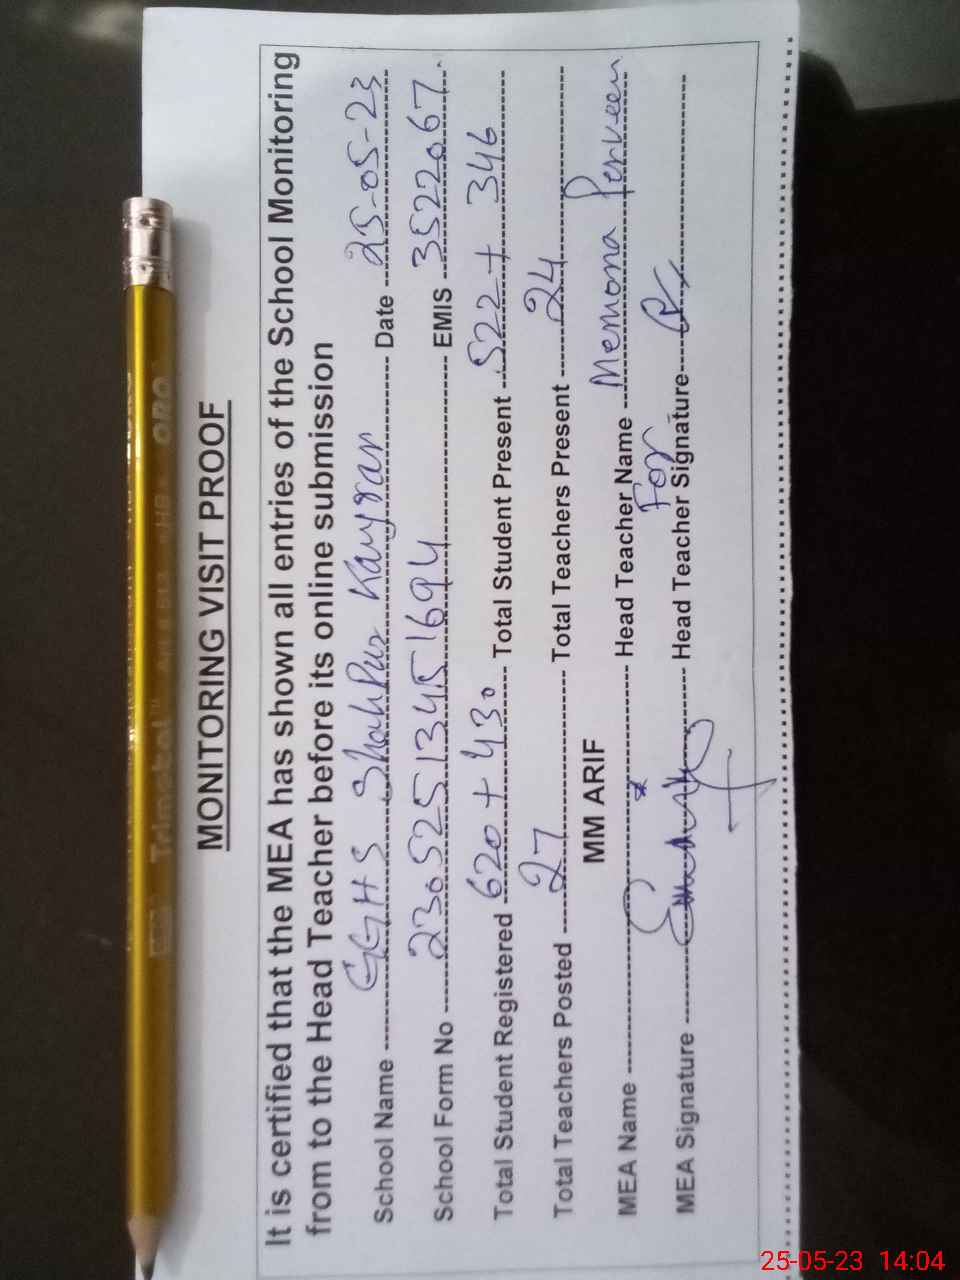 MONITORING VISIT PROOF
It is certified that the MEA has shown all entries of the School Monitoring
from to the Head Teacher before its online submission
School Name GGHS Shahpur Kanjran Date 25-05-23
School Form No 23052513451694 EMIS 3522067
Total Student Registered 620 + 430 Total Student Present 522 + 346
Total Teachers Posted 27 Total Teachers Present 24
MM ARIF
MEA Name Head Teacher Name Memona Perveen
For
MEA Signature Head Teacher Signature
Trimetal™ HB ORO
25-05-23 14:04